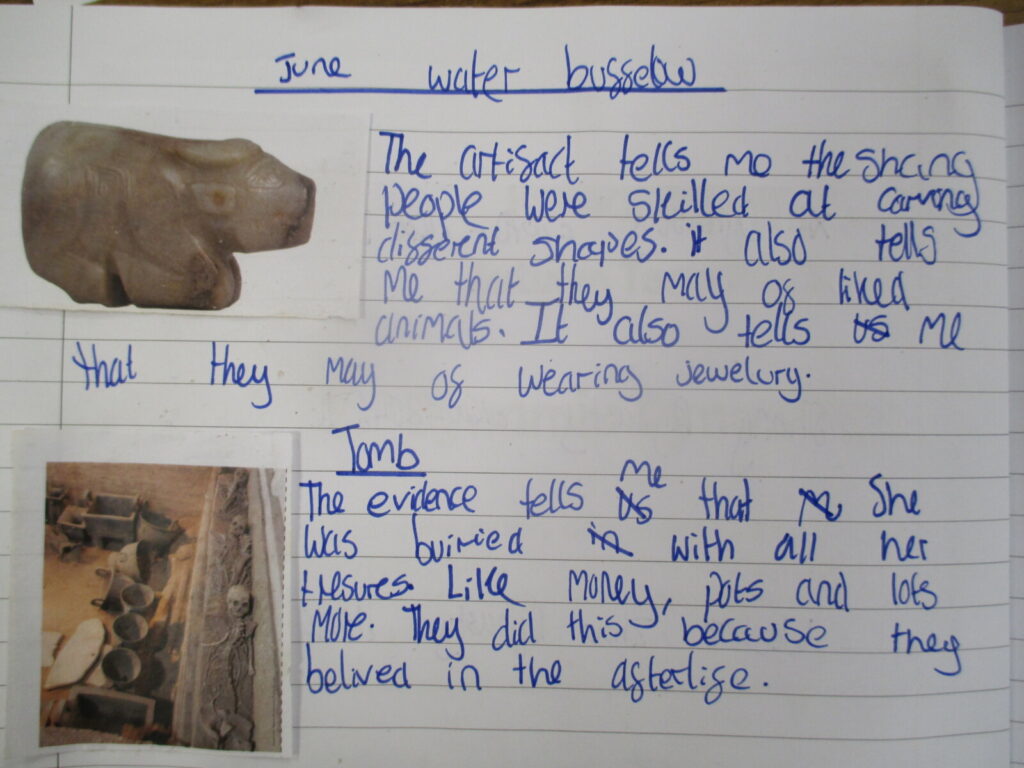 June water buffelow
The artifact tells me the Shang
people were skilled at carving
different shapes. it also tells
me that they may of liked
animals. It also tells me
that they may of wearing jewelury.
Tomb
The evidence tells me that She
was buiried with all her
tresures. Like money, pots and lots
more. They did this because they
belived in the afterlife.